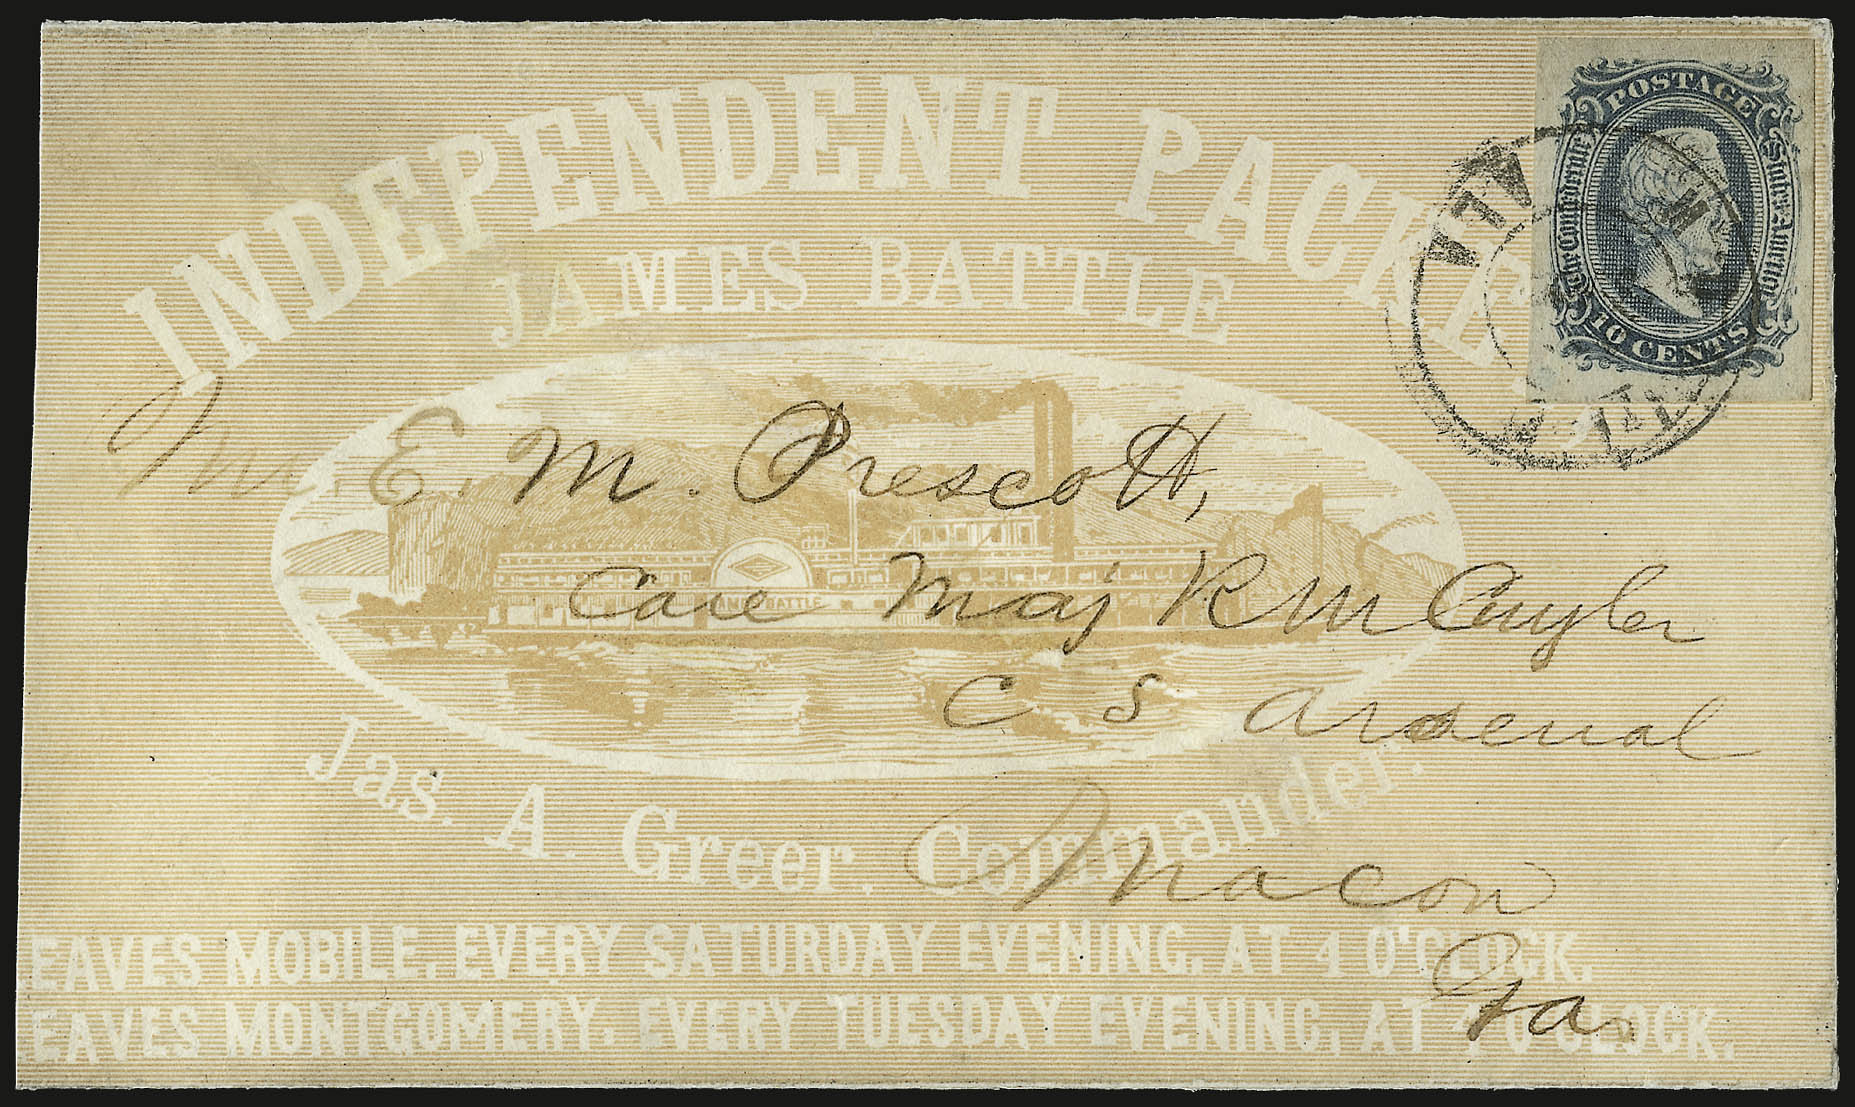 INDEPENDENT PACKET
JAMES BATTLE
POSTAGE
The Confederate States America
10 CENTS
ALA
Mr. E. M. Prescott,
Care Maj R M Cuyler
BATTLE
C S Arsenal
Jas. A. Greer. Commander.
Macon
Ga
EAVES MOBILE, EVERY SATURDAY EVENING, AT 4 O'CLOCK,
EAVES MONTGOMERY, EVERY TUESDAY EVENING, AT O'CLOCK.